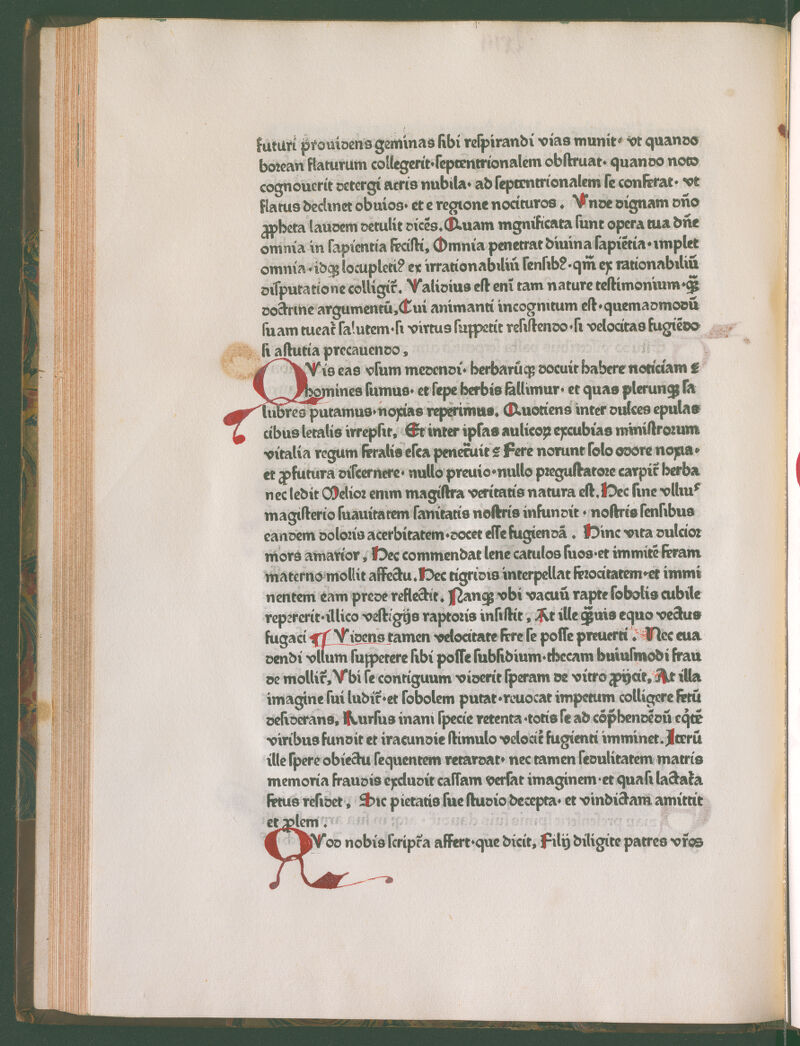 futuri ꝓouidens geminas ſibi reſpirandi vias munit· vt quando
boꝛean flaturum collegerit·ſeptentrionalem obſtruat· quando noto
cognouerit detergi aeris nubila· ad ſeptentrionalem ſe conferat· vt
flatus declinet obuios· et e regione nocituros. Vnde dignam dño
ꝓpheta laudem detulit dicēs. Quam mgnificata ſunt opera tua dñe
omnia in ſapientia feciſti, Omnia penetrat diuina ſapiētia·implet
omnia·idqꝫ locupletiꝰ ex irrationabiliū ſenſibꝰ·qm̄ ex rationabiliū
diſputatione colligit̄. Validius eſt eni̅ tam nature teſtimonium·qꝫ̄
doctrine argumentū, Cui animanti incognitum eſt·quemadmodū
ſuam tueat̄ ſalutem·ſi virtus ſuppetit reſiſtendo·ſi velocitas fugiēdo
ſi aſtutia precauendo,
QVis eas vſum medendi· herbarūqꝫ docuit habere noticiam ⁊
homines ſumus· et ſepe herbis fallimur· et quas plerunqꝫ ſa
lubres putamus·noxias reperimus. Quotiens inter dulces epulas
cibus letalis irrepſit, Et inter ipſas aulicoꝝ excubias miniſtroꝛum
vitalia regum feralis eſca penet̄uit ⁊ Fere norunt ſolo odore noxia·
et ꝓfutura diſcernere· nullo preuio·nullo pregustatoꝛe carpit̄ herba
nec ledit Melioꝛ enim magiſtra veritatis natura eſt. Hec ſine vlliuꝰ
magiſterio ſuauitatem ſanitatis noſtris infundit · noſtris ſenſibus
eandem doloꝛis acerbitatem·docet eſſe fugiendā . Hinc vita dulcioꝛ
mors amarior, Hec commendat lene catulos ſuos·et immitē feram
materno mollit affectu. Hec tigridis interpellat feꝛocitatem·et immi
nentem eam prede reflectit. Nanqꝫ vbi vacuū rapte ſobolis cubile
repererit·illico veſtigijs raptoris inſiſtit, At ille qꝫ̄uis equo vectus
fugaci ¶ Videns tamen velocitate fere ſe poſſe preuerti . Nec eua
dendi vllum ſuppetere ſibi poſſe ſubſidium·thecam huiuſmodi frau
de mollit̄, Vbi ſe contiguum viderit ſperam de vitro ꝓijcit, At illa
imagine ſui ludit̄·et ſobolem putat·reuocat impetum colligere fetū
deſiderans, Rurſus inani ſpecie retenta·totis ſe ad cōp̄hendēdū eq̄tē
viribus fundit et iracundie ſtimulo velocit̄ fugienti imminet. Iterū
ille ſpere obiectu ſequentem retardat· nec tamen ſedulitatem matris
memoria fraudis excludit caſſam verſat imaginem·et quaſi lactat̄a
fetus reſidet, Sic pietatis ſue ſtudio decepta· et vindictam amittit
et ꝓlem .
QVod nobis ſcript̄a affert·que dicit, Filij diligite patres vr̄os